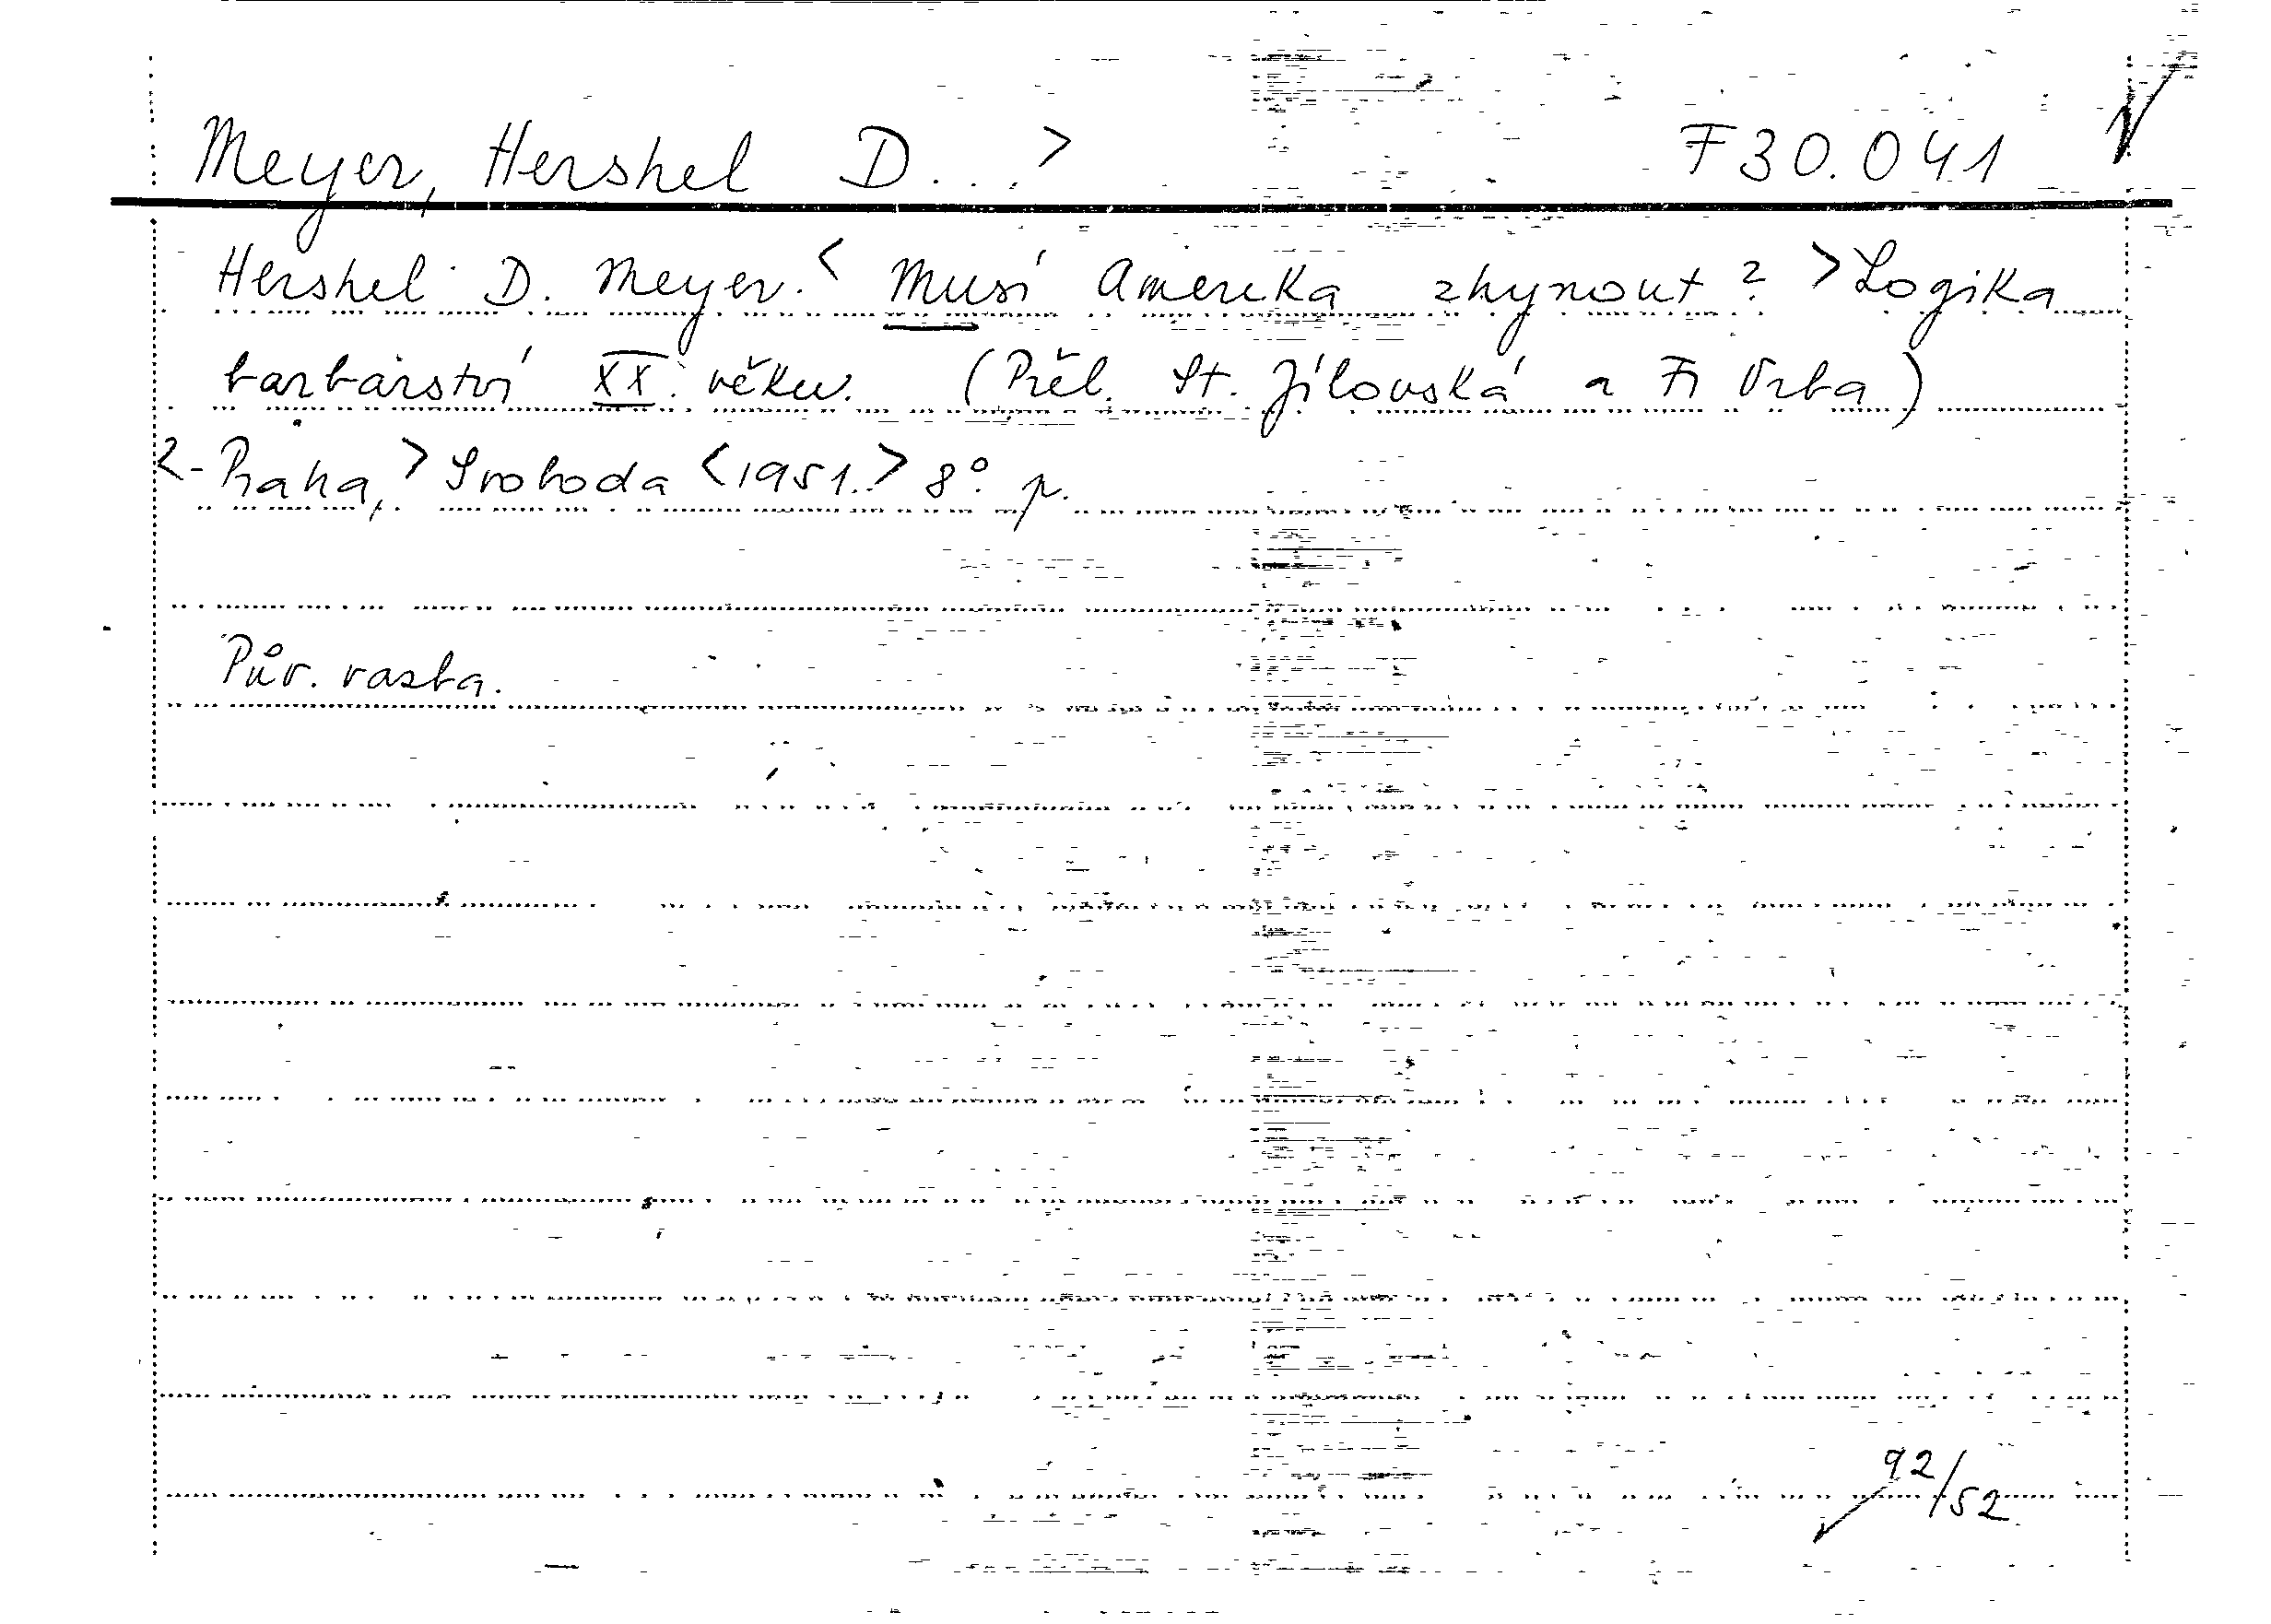 Meyer, Hershel D...> F 30.041
Hershel D. Meyer.< Musí Amerika zhynout? >Logika
barbarství XX. věku. (Přel. St. Jílovská a Fr Vrba)
<- Praha, >Svoboda <1951.> 8° p.
Pův. vazba.
92/52